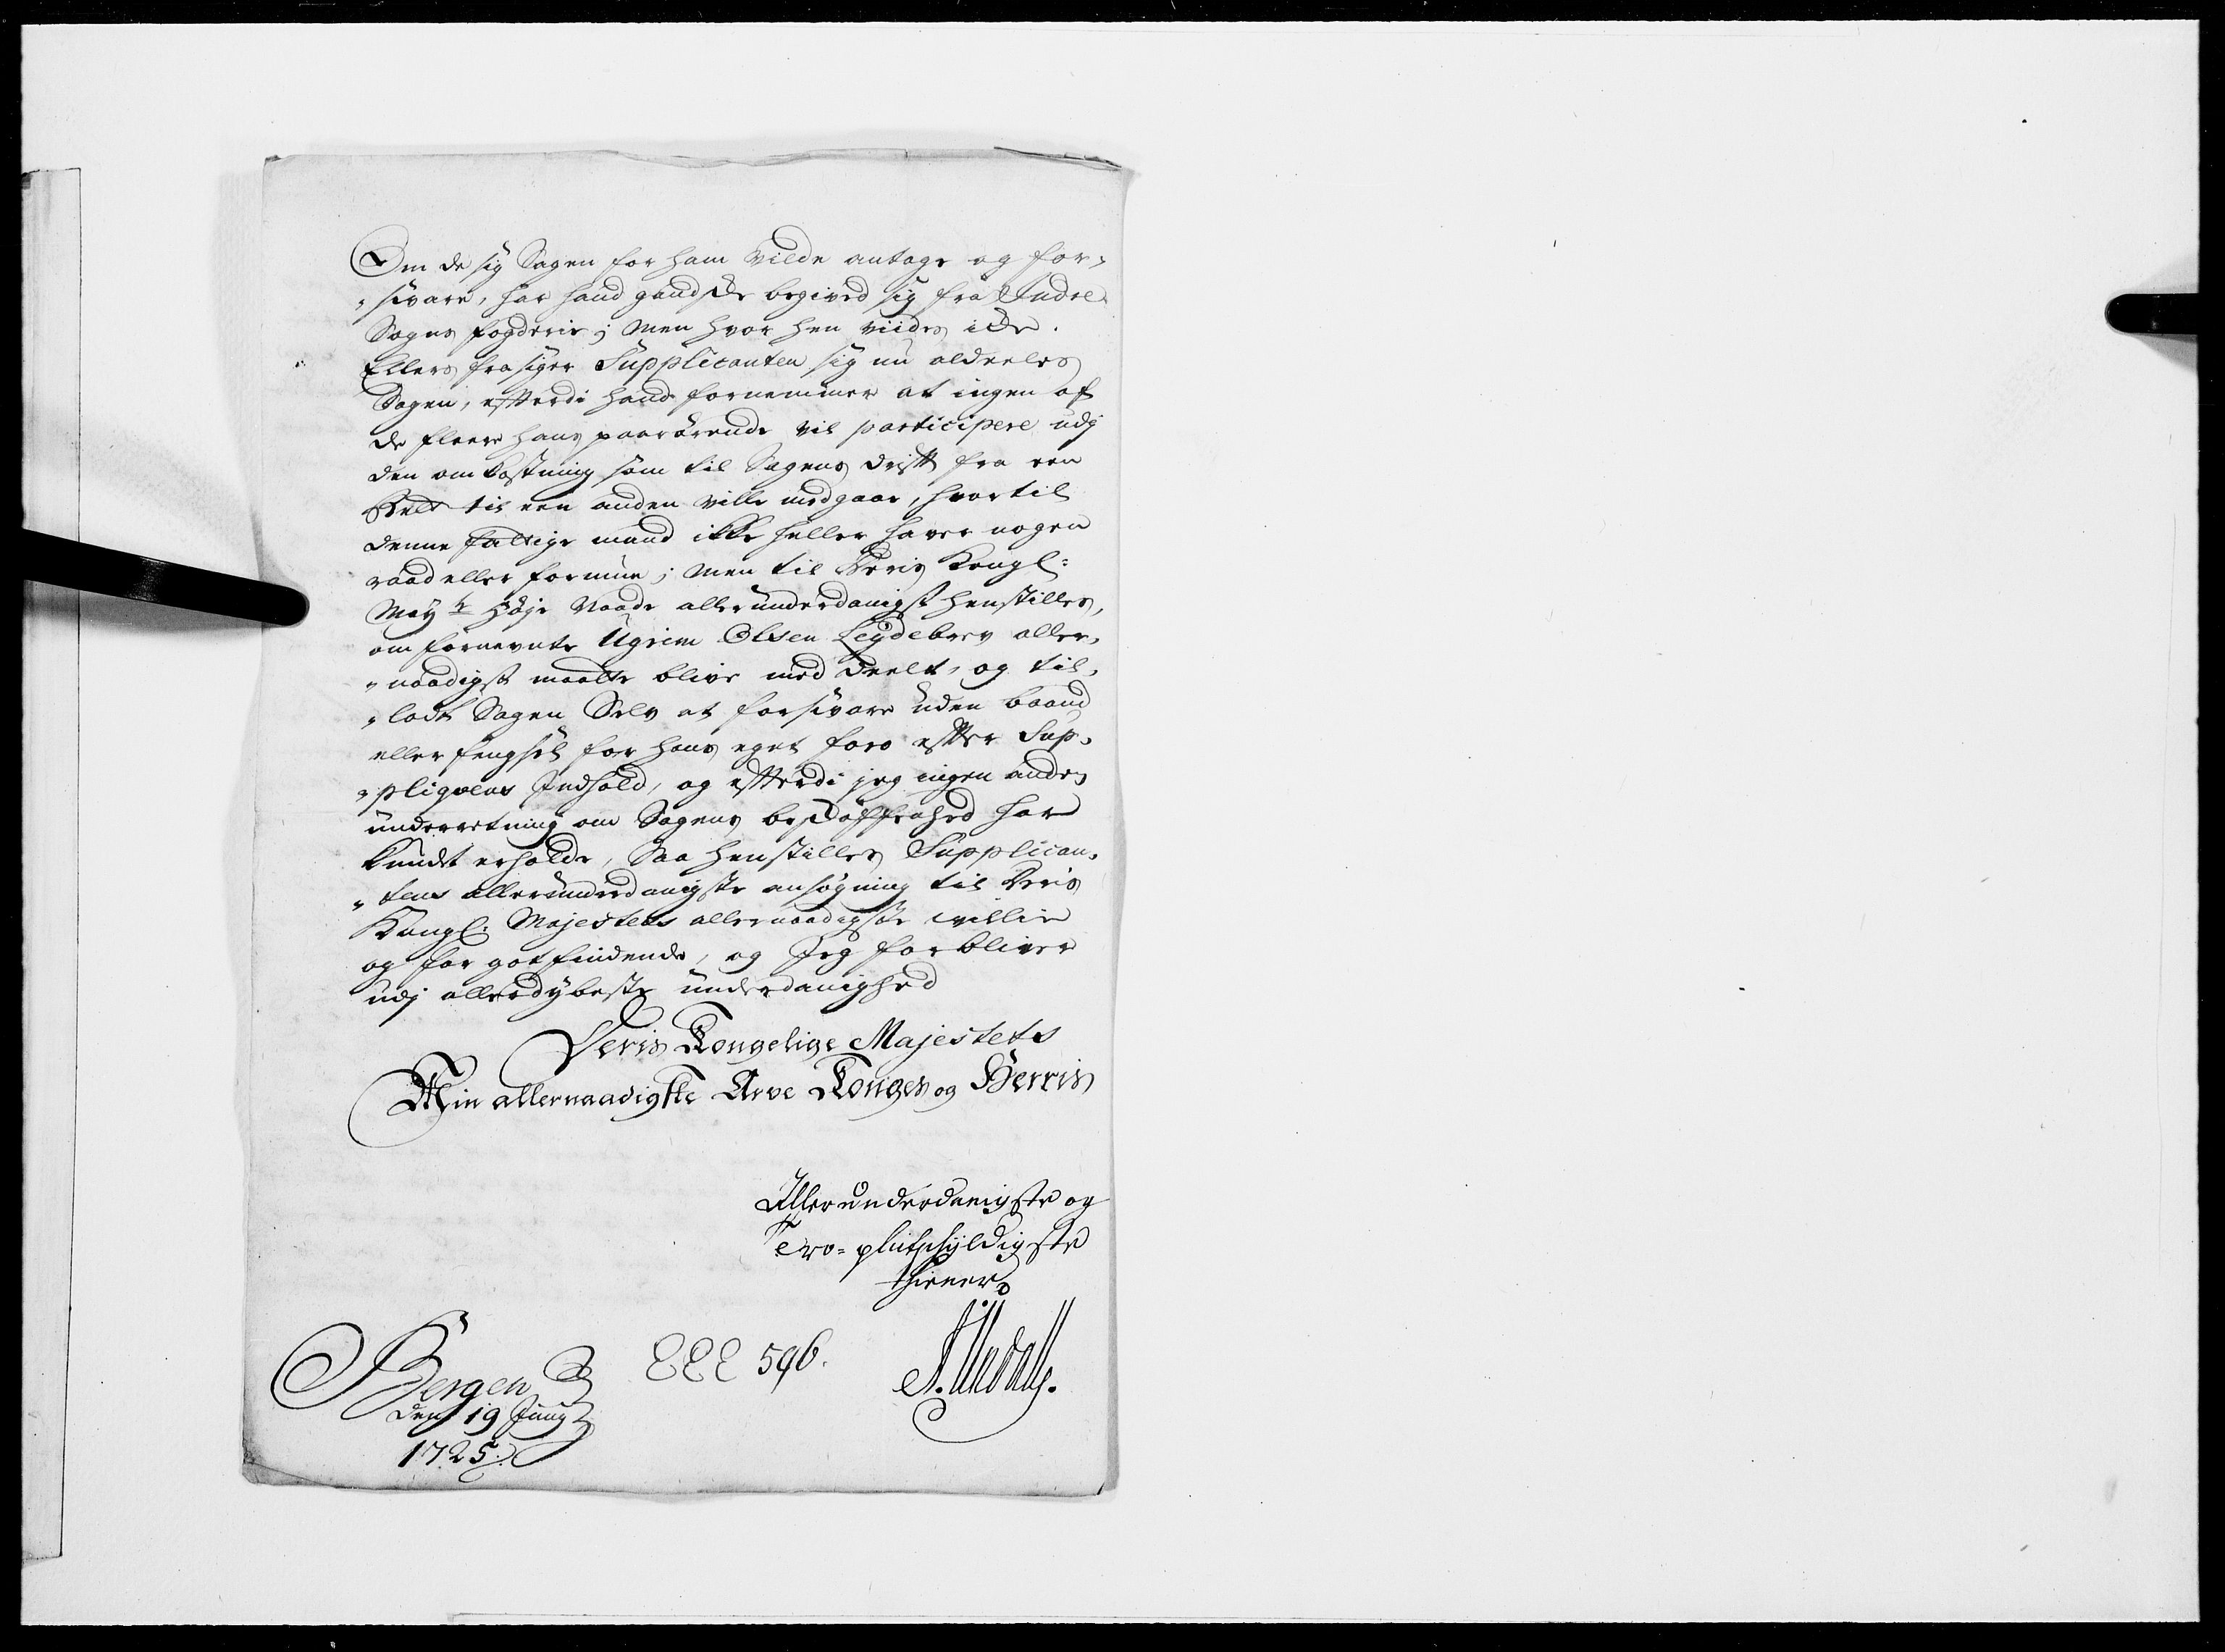 Om de sig Sagen for ham vilde antage og for-
"svare, har hand gandske begived sig fra Indre
Sogns fogderie; men hvor hen viides icke.
Ellers frasiger Supplicanten sig nu aldeeles
Sagen, efterdi hand fornemmer at ingen af
de fleere hans paarørende vil participere udj
den omkostning som til Sagens drift fra een
Rett til een anden ville medgaae, hvortil
denne fattige mand ikke heller haver nogen
raad eller formue; men til Deris Kongl:
May.ts Høje Naade allerunderdanigst henstilles,
om fornevnte Ugrim Olsen Leydebrev aller-
"naadigst maatte blive meddeelt, og til-
"ladt Sagen Selv at forsvare uden baand
eller fengsel for hans eget foro efter Sup-
"pliqvens Indhold, og efterdi jeg ingen anden
underretning om Sagens beskaffenhed har
kundet erholde, Saa henstilles Supplican-
"tens allerunderdanigste ansøgning til Deris
Kongl: Majestets allernaadigste villie
og for got findende, og Jeg forbliver
udj allerdybeste underdanighed
Deris Kongelige Majestets
Min allernaadigste Arve Konges og Herris
Allerunderdanigste og
Troe-pligtskyldigste
thiener
Bergen
den 19 Juny
1725.
EEE 596.
A. Undall.